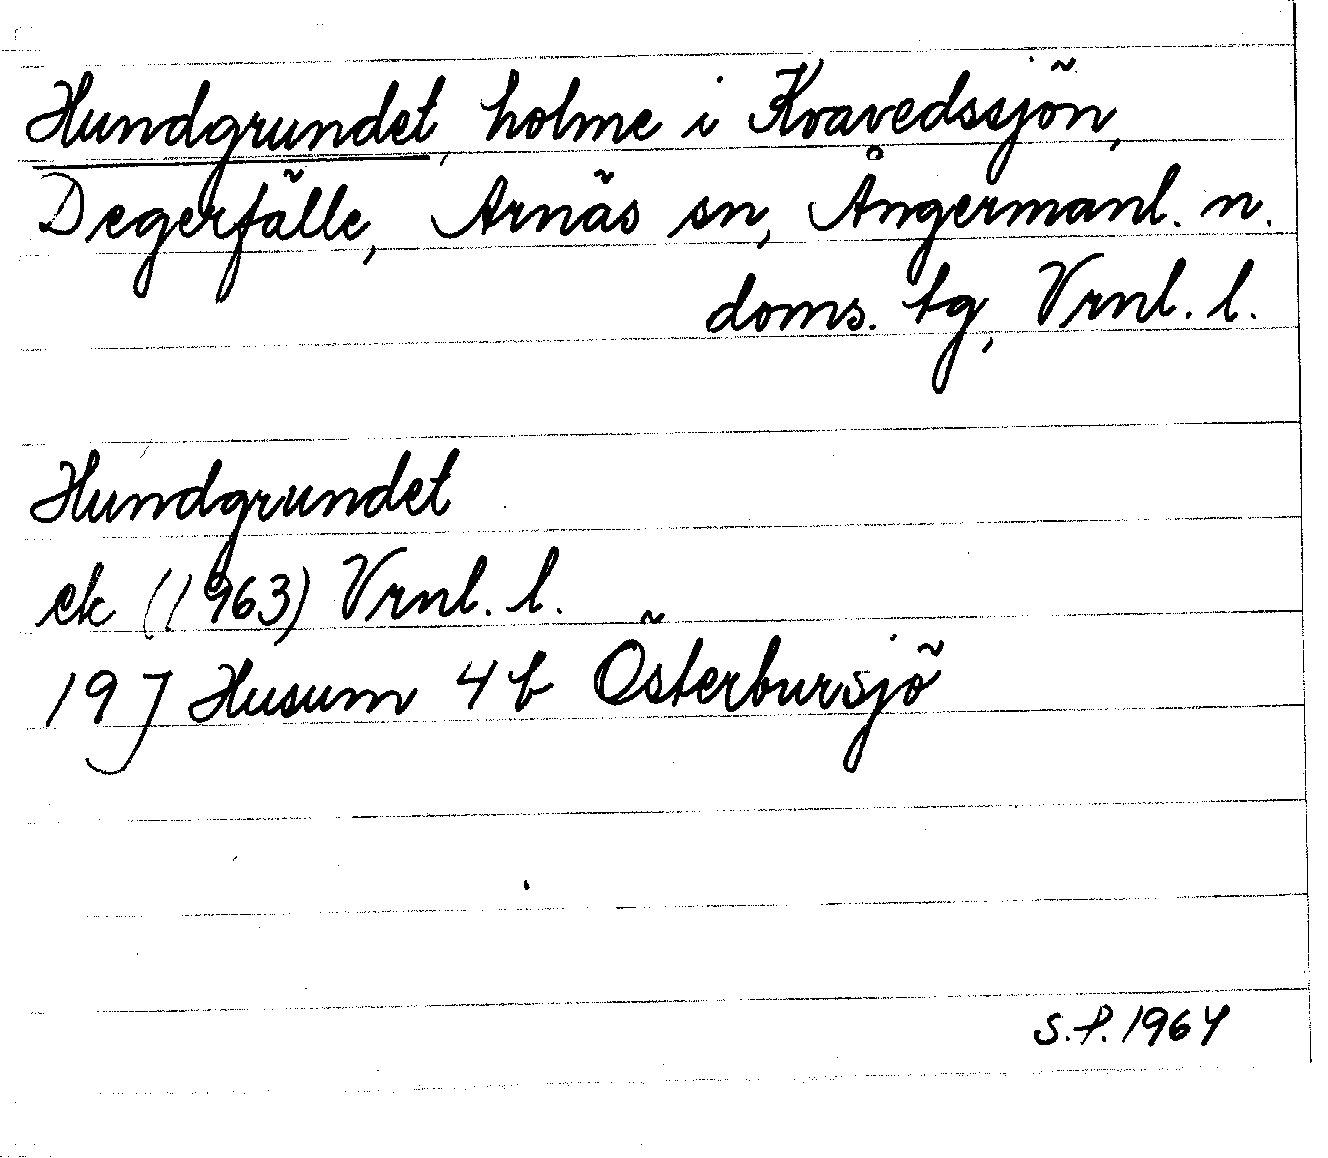 Hundgrundet, holme i Kvavedssjön,
Degerfälle, Arnäs sn, Ångermanl. n.
doms. tg, Vrnl. l.
Hundgrundet
ek (1963) Vrnl. l.
19 J Husum 4 b Österbursjö
S.P. 1964